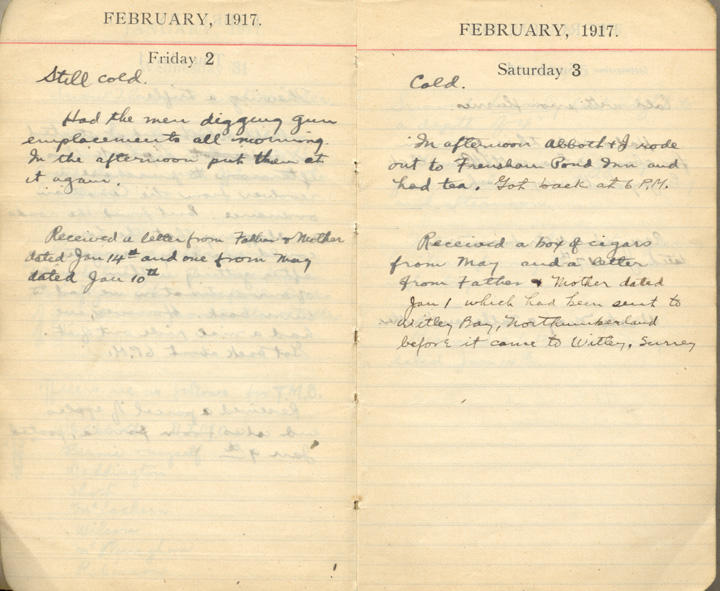 FEBRUARY, 1917.
Friday 2
Still cold.
Had the men digging gun
emplacements all morning.
In the afternoon put them at
it again.
Received a letter from Father & Mother
dated Jan 14th and one from May
dated Jan 10th
FEBRUARY, 1917.
Saturday 3
Cold.
In afternoon Abbott & I rode
out to Frensham Pond Inn and
had tea. Got back at 6 P.M.
Received a box of cigars
from May and a letter
from Father & Mother dated
Jan 1 which had been sent to
Witley Bay, Northumberland
before it came to Witley, Surrey